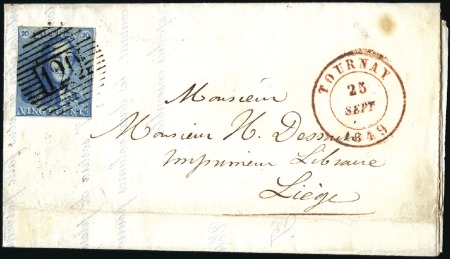 20 20
VINGT
TOURNAY
25
SEPT
1849
Monsieur
Monsieur H. Dessain
Imprimeur Libraire
Liège